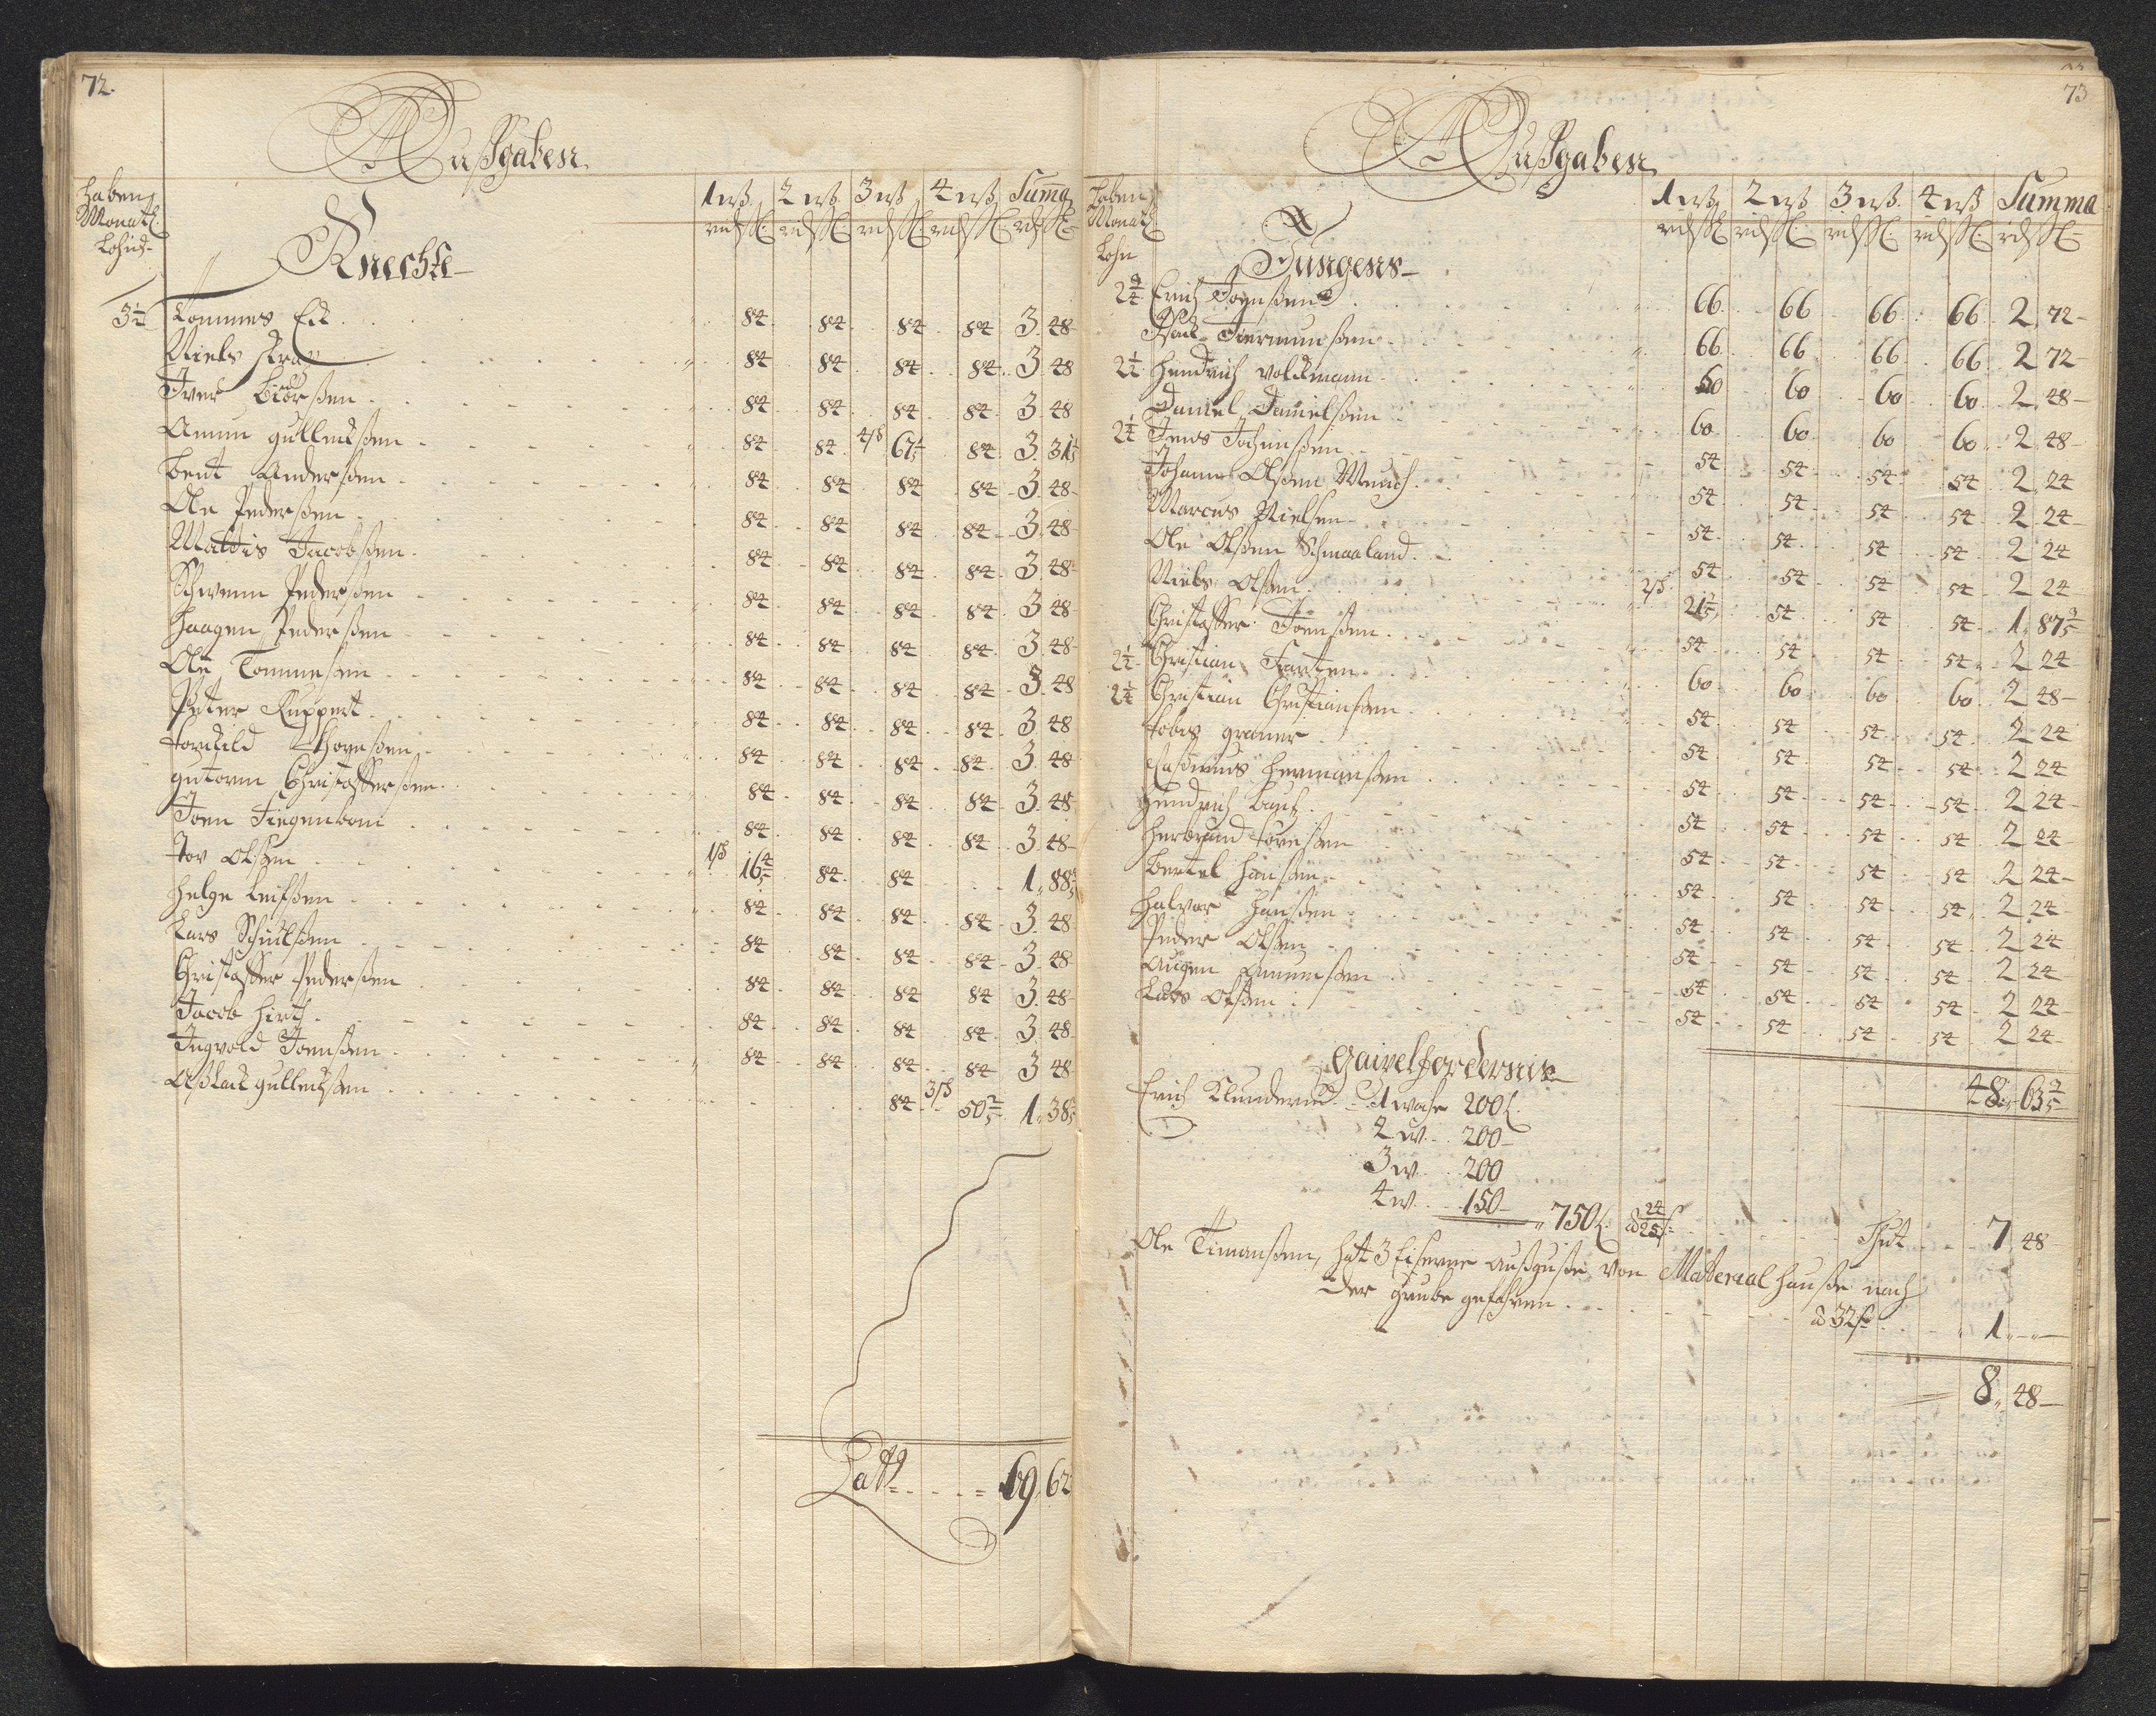 72.
Außgaben
haben Monatl. Lohn
1 wß 2 wß 3 wß 4 wß Suma
rd ß rd ß rd ß rd ß rd ß
Knechte
3½ Tommes 84 84 84 84 3 48
Niels 84 84 84 84 3 48
Iver 84 84 84 84 3 48
Amun Gullecksen 84 84 4/s 67 1/5 84 3 31 1/5
Bent Andersen 84 84 84 84 3 48
Ole Pedersen 84 84 84 84 3 48
Mattis Jacobsen 84 84 84 84 3 48
Schwenn Pedersen 84 84 84 84 3 48
Haagen Pedersen 84 84 84 84 3 48
Ole Tommesen 84 84 84 84 3 48
Peter Ruppert 84 84 84 84 3 48
Torkild Thorsen 84 84 84 84 3 48
Gutorm Christoffersen 84 84 84 84 3 48
Joen Tiegenbom 84 84 84 84 3 48
Tor Olsen 1/s 16 4/5 84 84 1 88 4/5
Helge Leifsen 84 84 84 84 3 48
Lars Schulsen 84 84 84 84 3 48
Christoffer Pedersen 84 84 84 84 3 48
Jacob Hirt 84 84 84 84 3 48
Ingvold Joensen 84 84 84 84 3 48
Aßlack Gullecksen 84 3/s 50 2/5 1 38 2/5
Latt 69 62
73
Außgaben
haben Monatl Lohn
1 wß 2 wß 3 wß 4 wß Summa
rd ß rd ß rd ß rd ß rd ß
Jungens
2¾ Erich Joensen 66 66 66 66 2 72
Isack 66 66 66 66 2 72
2½ Hendrich Volckmann 60 60 60 60 2 48
Daniel Danielsen 60 60 60 60 2 48
2¼ Jens Jochimsen 54 54 54 54 2 24
Johann Olsen Munch 54 54 54 54 2 24
Marcus Nielsen 54 54 54 54 2 24
Ole Olsen Schmaaland 54 54 54 54 2 24
Niels Olsen 2/s 21 3/5 54 54 54 1 87 3/5
Christoffer Joensen 54 54 54 54 2 24
2½ Christian 60 60 60 60 2 48
2¼ Christian Christiansen 54 54 54 54 2 24
Tobes Graner 54 54 54 54 2 24
Casimus Hermansen 54 54 54 54 2 24
Hendrich 54 54 54 54 2 24
Herbrand Toresen 54 54 54 54 2 24
Bertel Hansen 54 54 54 54 2 24
Halvor Hansen 54 54 54 54 2 24
Peder Olsen 54 54 54 54 2 24
Augen Amunsen 54 54 54 54 2 24
Lars Olsen 54 54 54 54 2 24
48 63 3/5
Gaipelfordernis
Erich Klunderud 1 woche 200
2 w. 200
3 w. 200
4 w. 150 750 à 24/25 ß thut 7 48
Ole Timansen, hatt 3 Eiserne außguße von Material hauße nach
der grube gefahren à 32 ß 1
8 48